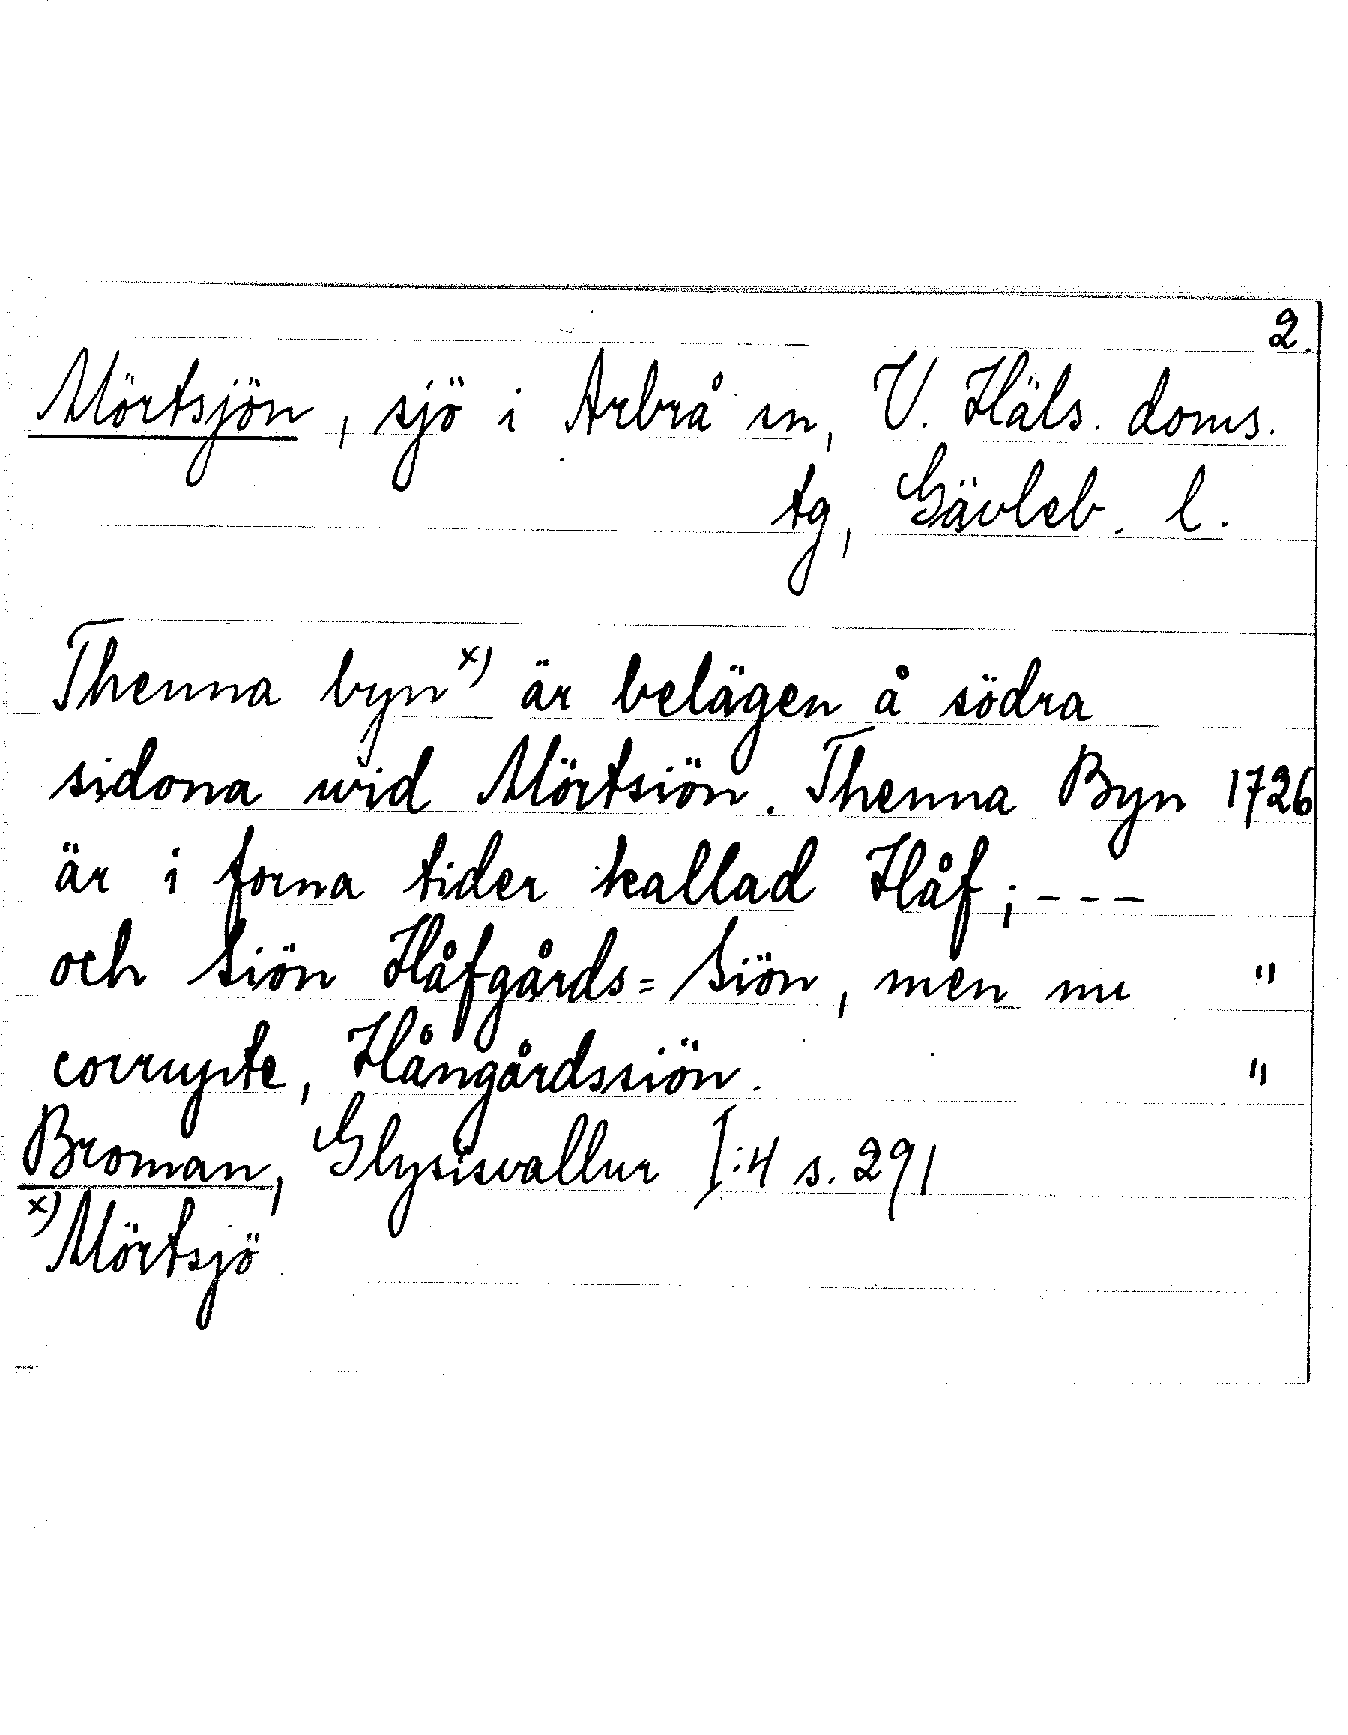 2.
Mörtsjön, sjö i Arbrå sn, V. Häls. doms.
tg, Gävleb. l.
Thenna byn x) är belägen å södra
sidona wid Mörtsiön. Thenna Byn 1726
är i forna tider kallad Håf; - - -
och Siön Håfgårds=Siön, men nu "
corrupte, Hångårdssiön. "
Broman, Glysisvallur I:4 s. 291
x) Mörtsjö